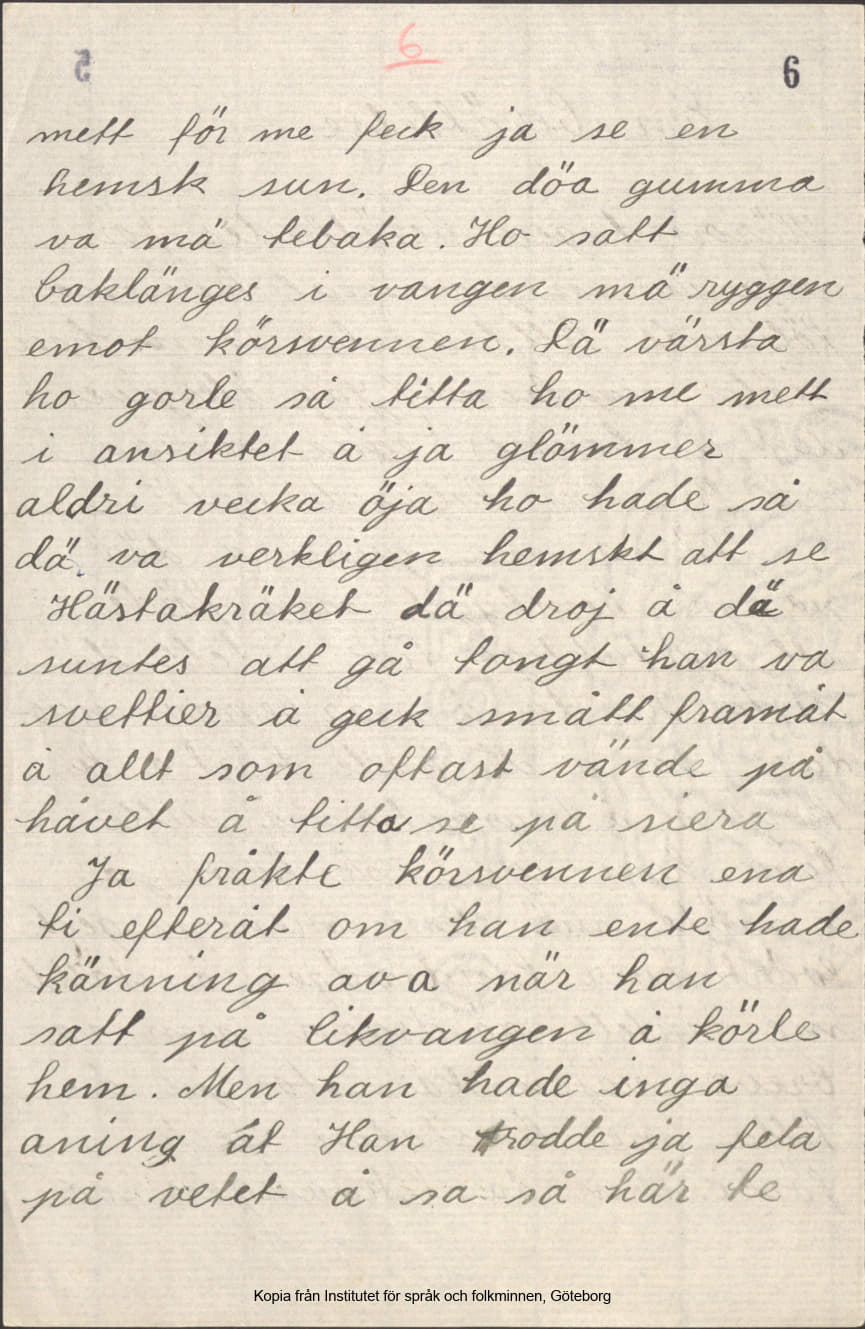 6
6
mett för me feck ja se en
hemsk sun. Den döa gumma
va mä tebaka. Ho satt
baklänges i vangen mä ryggen
emot körsvennen. Dä värsta
ho gorle så titta ho me mett
i ansiktet å ja glömmer
aldri vecka öja ho hade så
dä va verkligen hemskt att se
Hästakräket dä droj å dä
suntes att gå tongt han va
svettier å geck smått framåt
å allt som oftast vände på
håvet å titta se på siera
Ja fråkte körsvennen ena
ti efteråt om han ente hade
känning ava när han
satt på likvangen å körle
hem. Men han hade inga
aning åt Han trodde ja fela
på vetet å sa så här te
Kopia från Institutet för språk och folkminnen, Göteborg